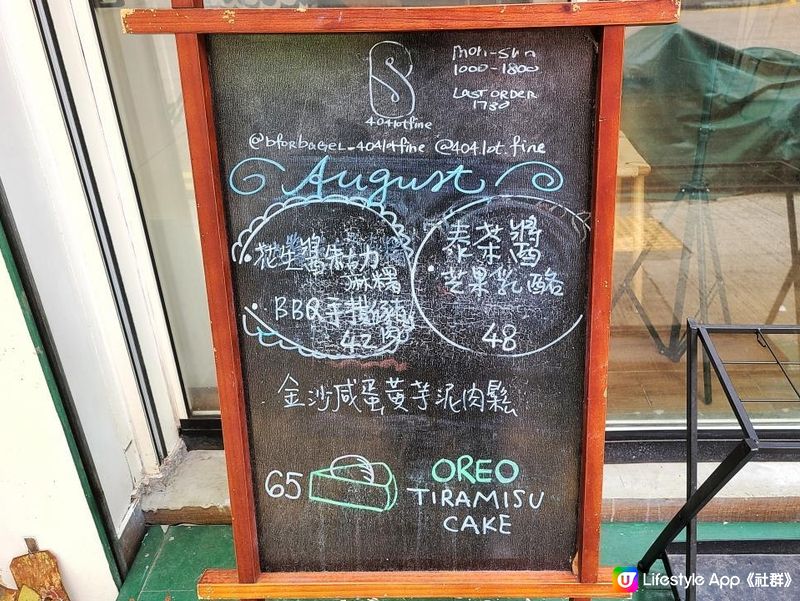 Mon-Sun
1000-1800
LAST ORDER
1730
404lotfine
@bforbagel_404lotfine @404.lot.fine
August
花生醬朱古力
麻糬
• BBQ手撕豬
42
泰茶醬
• 芒果乳酪
48
金沙咸蛋黃芋泥肉鬆
65
OREO
TIRAMISU
CAKE
U Lifestyle App《社群》